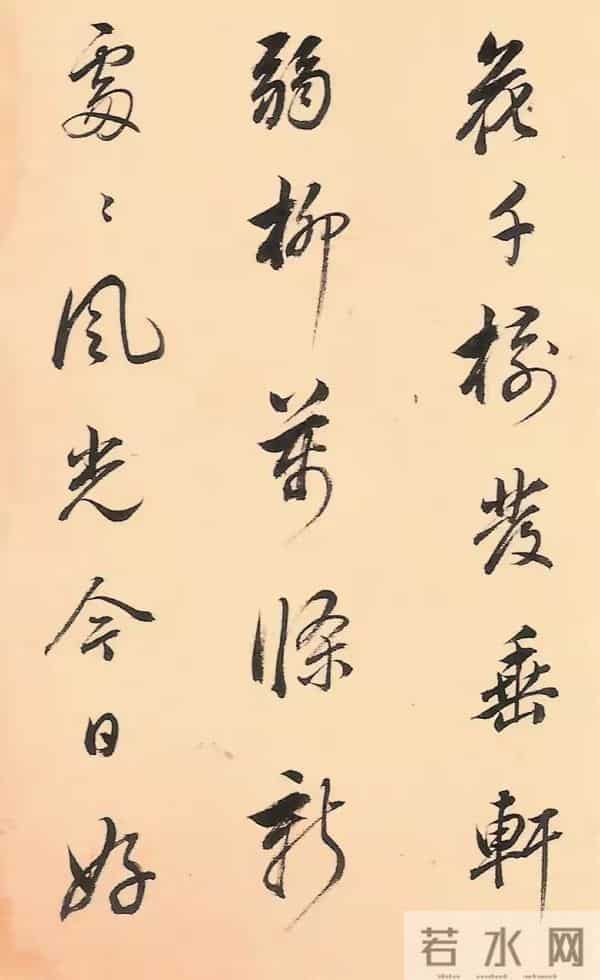 花千樹發垂軒
弱柳萬條新
處〻風光今日好
若水网